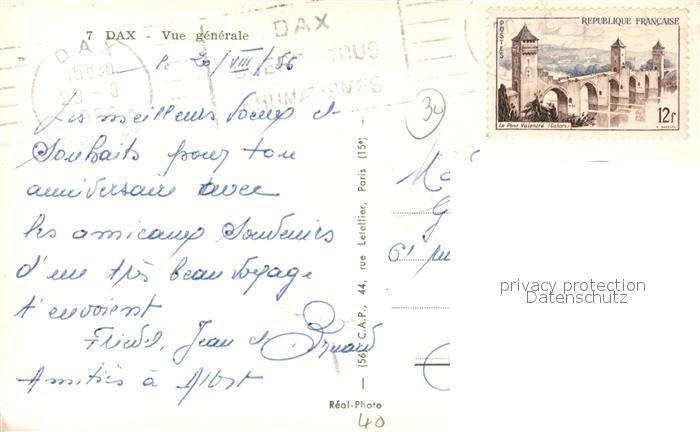 7 DAX - Vue générale
DAX
DAX
15H30
20-8
RHUMATISMES
le 20/VIII/56
30
Les meilleurs voeux et
Souhaits pour ton
anniversaire avec
les amicaux Souvenirs
d'un très beau voyage
t'envoient
Jean et Bernard
Amitiés à Albert
REPUBLIQUE FRANÇAISE
POSTES
Le Pont Valentré (Cahors)
12F
61 rue
(56) C.A.P., 44, rue Letellier, Paris (15e)
privacy protection
Datenschutz
Réal-Photo
40